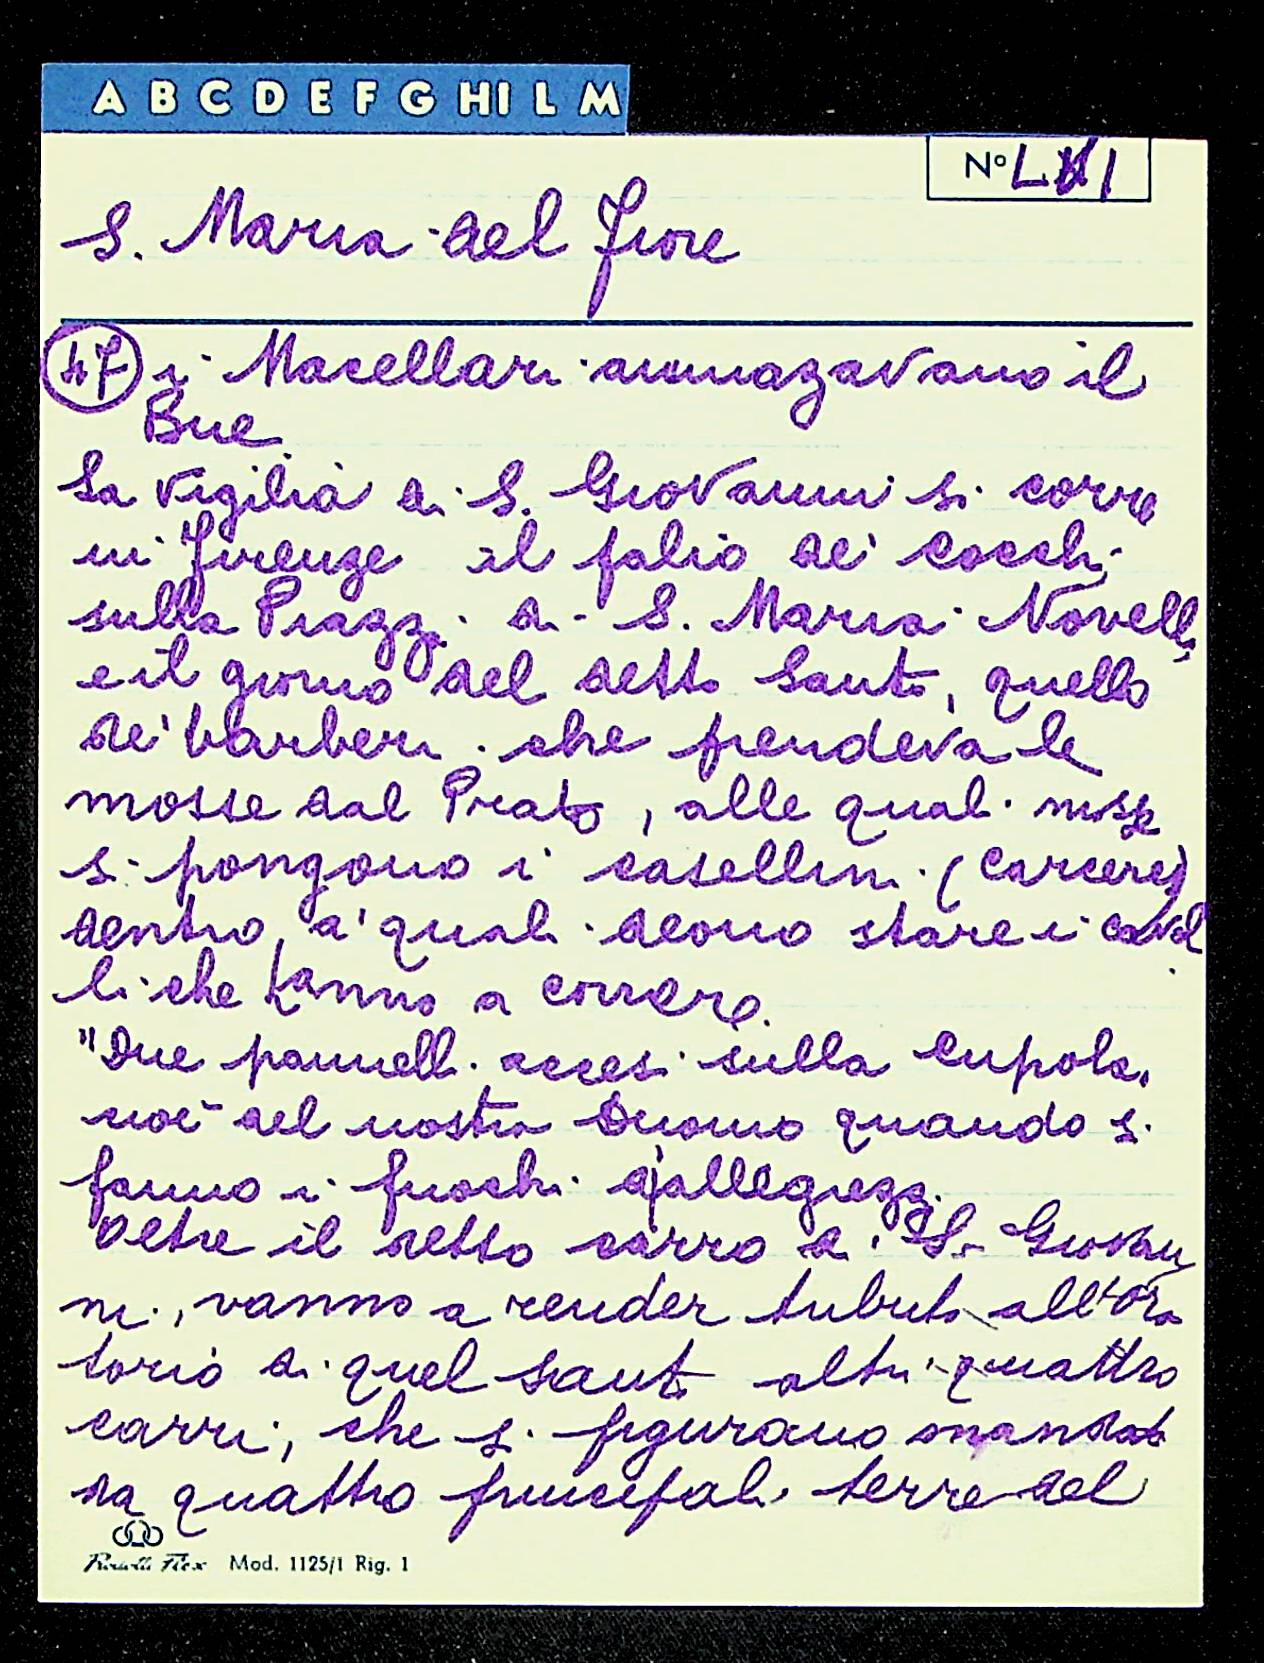 A B C D E F G HI L M
No LVI
S. Maria del Fiore
47 i Macellari ammazavano il
Bue
La vigilia di S. Giovanni si corre
in Firenze il palio de' cocchi
sulla Piazza di S. Maria Novella
e il giorno del detto Santo, quello
de' barberi che prendeva le
mosse dal Prato, alle quali mosse
si pongono i casellini (carceri)
dentro a' quali deono stare i caval
li che hanno a correre.
"Due pannelli accesi sulla cupola,
cioè del nostro Duomo quando si
fanno i fuochi d'allegrezza.
Oltre il detto carro di S. Giovan
ni, vanno a render tributo all'Ora
torio di quel Santo altri quattro
carri, che si figurano mandati
da quattro principali terre del
Mod. 1125/1 Rig. 1